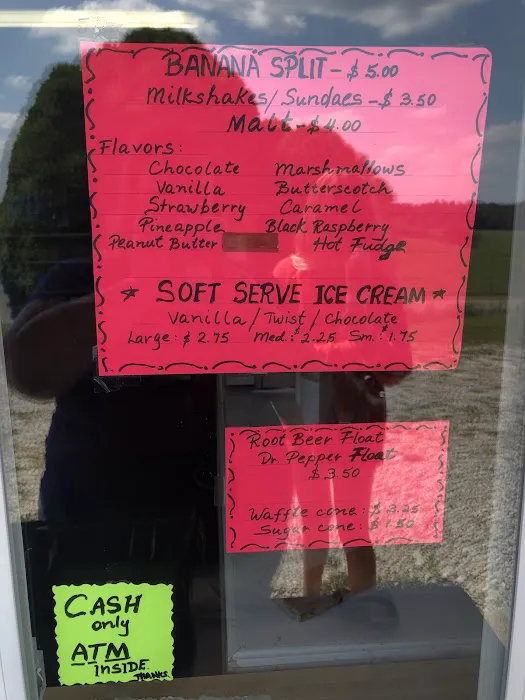 BANANA SPLIT - $ 5.00
Milkshakes/Sundaes - $ 3.50
Malt - $ 4.00
Flavors:
Chocolate Marshmallows
Vanilla Butterscotch
Strawberry Caramel
Pineapple Black Raspberry
Peanut Butter Hot Fudge
★ SOFT SERVE ICE CREAM ★
Vanilla / Twist / Chocolate
Large: $ 2.75 Med.: $ 2.25 Sm.: $ 1.75
Root Beer Float
Dr. Pepper Float
$ 3.50
Waffle cone: $ 3.25
Sugar cone: $ 1.50
CASH
only
ATM
INSIDE
THANKS